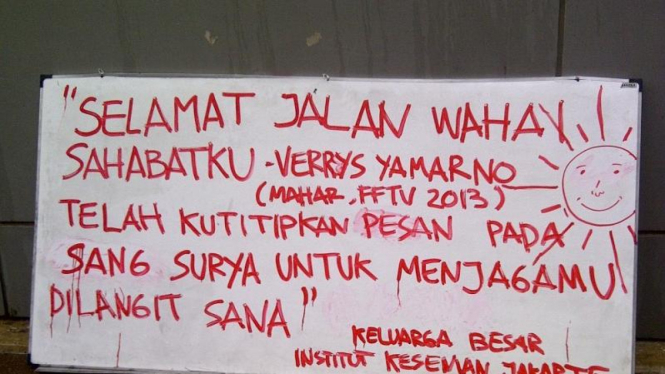 "SELAMAT JALAN WAHAY
SAHABATKU - VERRYS YAMARNO
(MAHAR, FFTV 2013)
TELAH KUTITIPKAN PESAN PADA
SANG SURYA UNTUK MENJAGAMU
DILANGIT SANA"
KELUARGA BESAR
INSTITUT KESENIAN JAKARTA